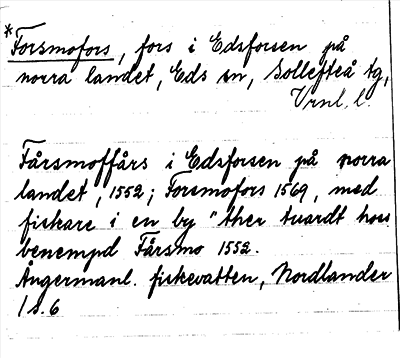 *Forsmofors, fors i Edsforsen på
norra landet, Eds sn, Sollefteå tg,
Vrnl. l.
Fårsmoffårs i Edsforsen på norra
landet, 1552; Forsmofors 1569, med
fiskare i en by "ther tuardt hoss
benempd Fårsmo 1552.
Ångermanl. fiskevatten, Nordlander
1 s. 6